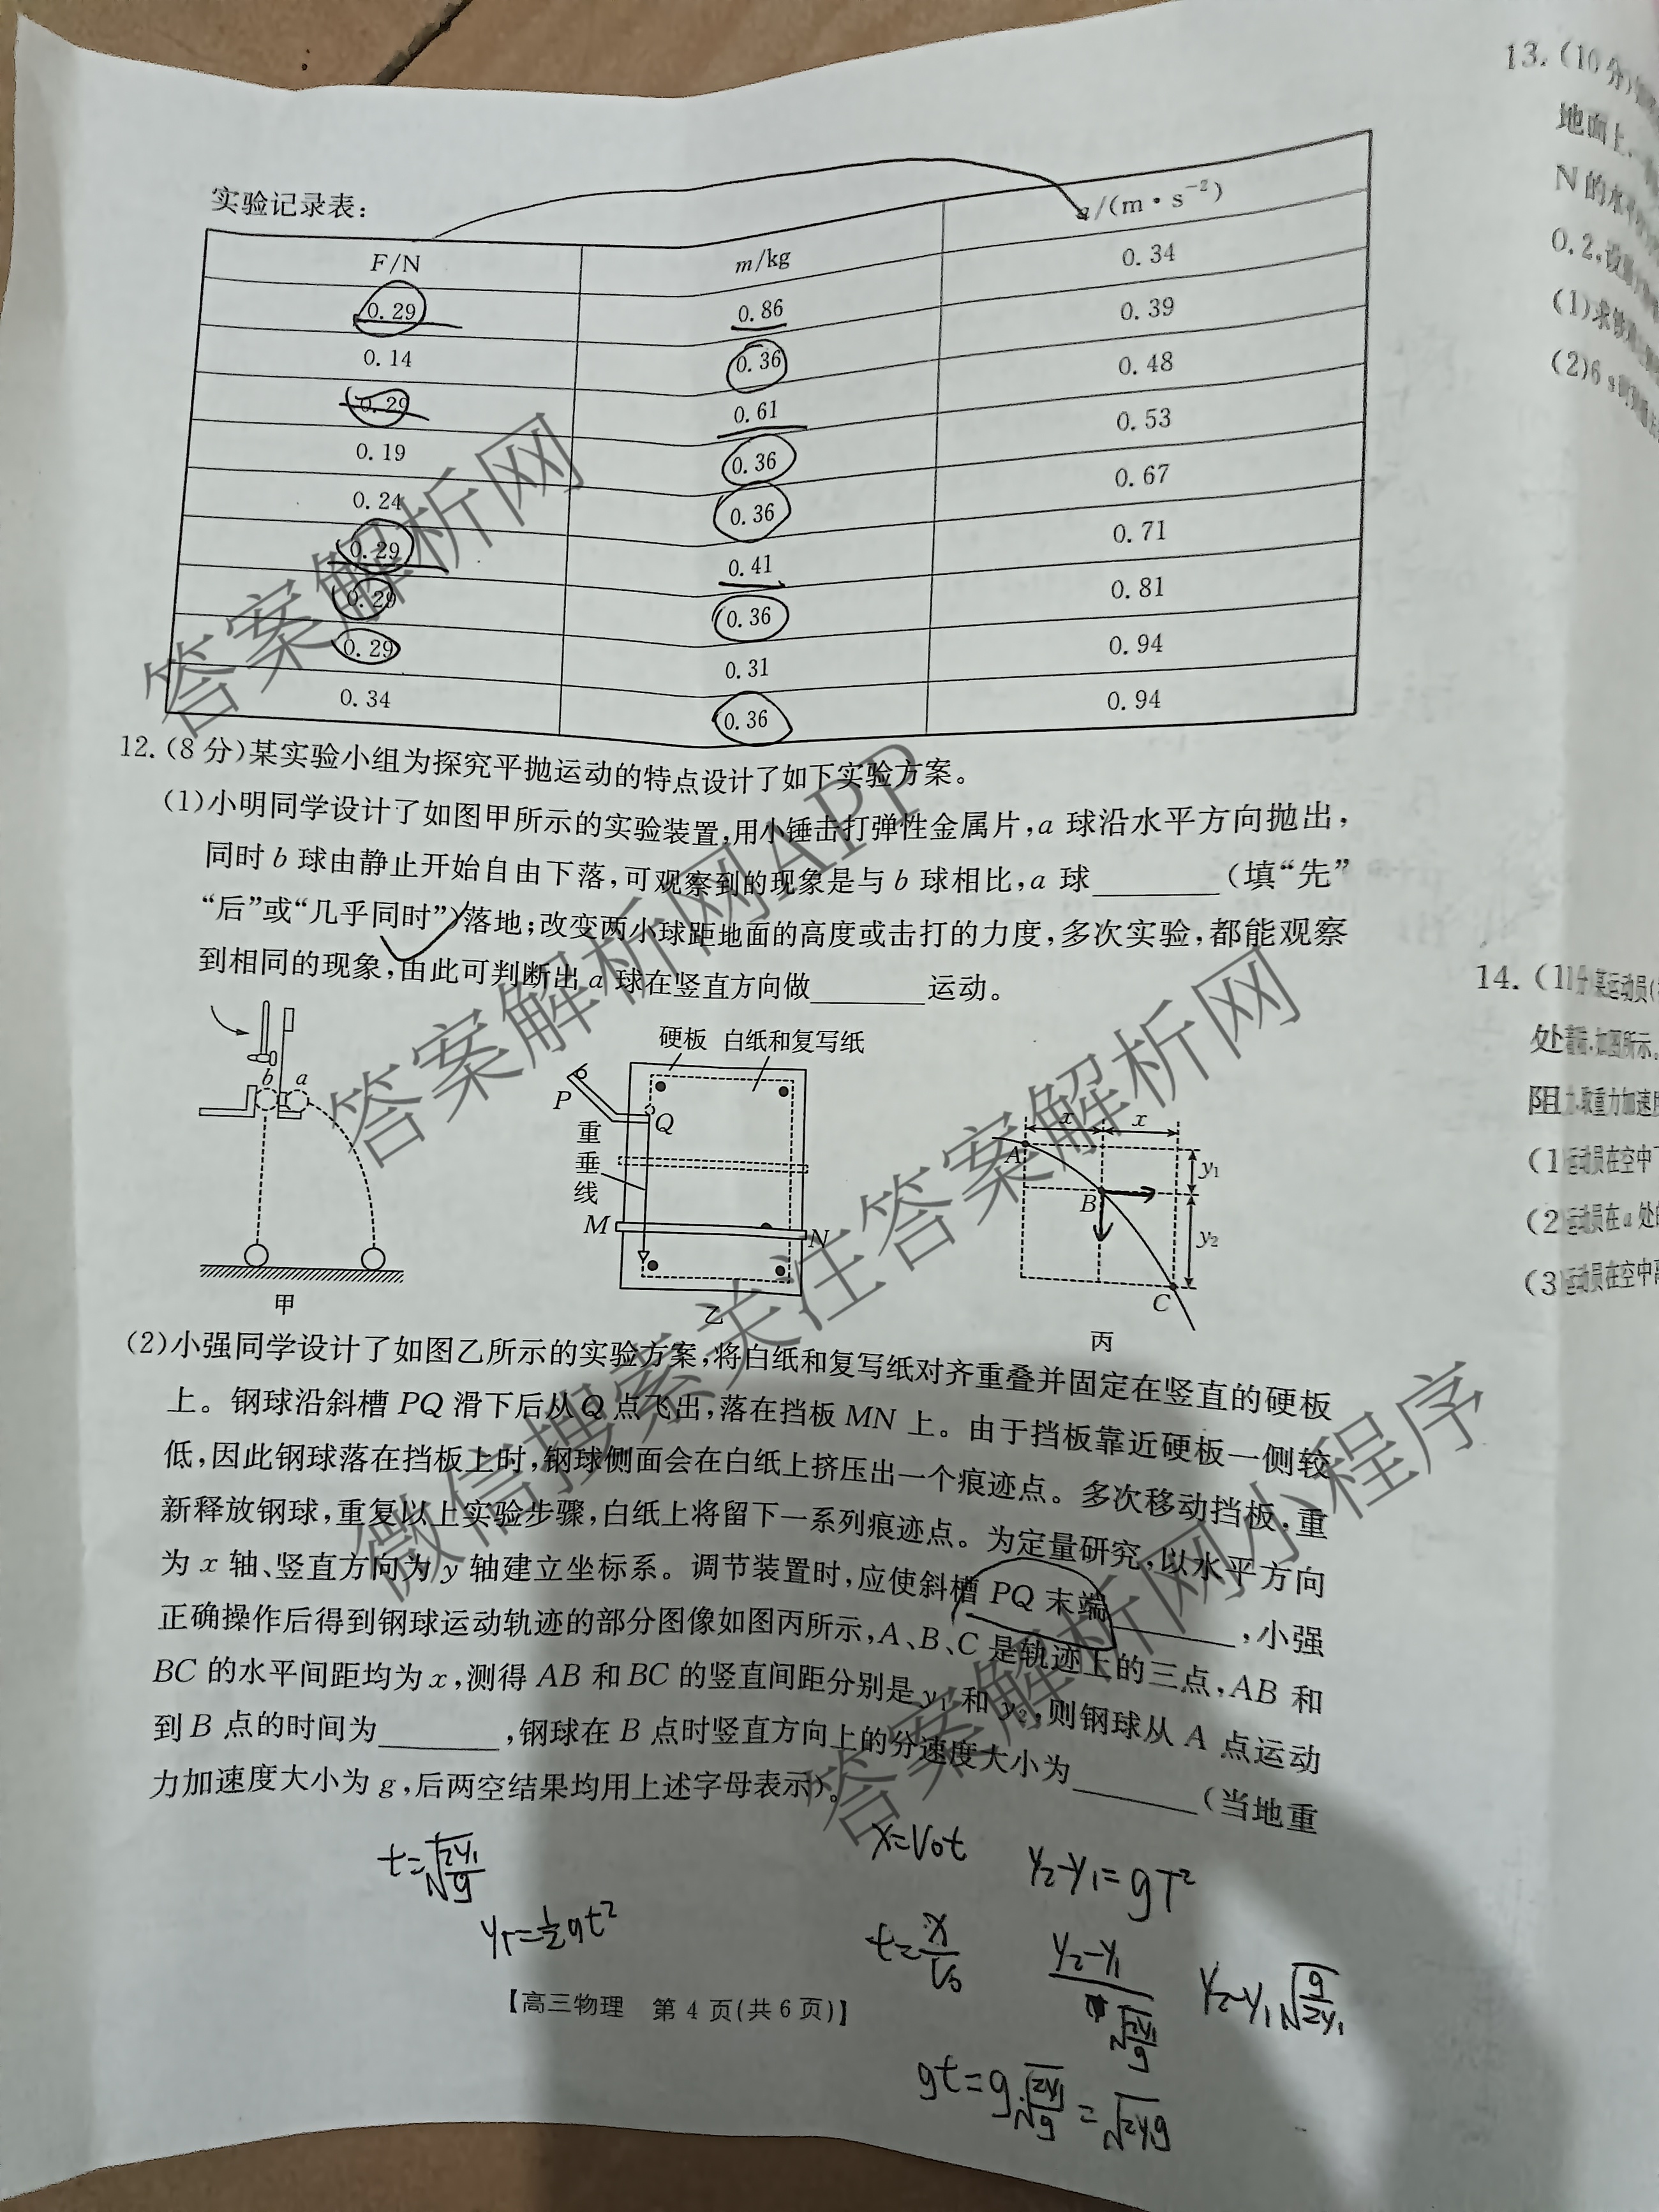 实验记录表：
F/N m/kg a/(m·s⁻²)
0.29 0.86 0.34
0.14 0.36 0.39
0.29 0.61 0.48
0.19 0.36 0.53
0.24 0.36 0.67
0.29 0.41 0.71
0.29 0.36 0.81
0.29 0.31 0.94
0.34 0.36 0.94
12.(8分)某实验小组为探究平抛运动的特点设计了如下实验方案。
(1)小明同学设计了如图甲所示的实验装置,用小锤击打弹性金属片,a球沿水平方向抛出,
同时b球由静止开始自由下落,可观察到的现象是与b球相比,a球________(填“先”
“后”或“几乎同时”)落地;改变两小球距地面的高度或击打的力度,多次实验,都能观察
到相同的现象,由此可判断出a球在竖直方向做________运动。
b a
甲
硬板 白纸和复写纸
P
Q
重垂线
M
N
乙
x x
A
y₁
B
y₂
C
丙
(2)小强同学设计了如图乙所示的实验方案,将白纸和复写纸对齐重叠并固定在竖直的硬板
上。钢球沿斜槽PQ滑下后从Q点飞出,落在挡板MN上。由于挡板靠近硬板一侧较
低,因此钢球落在挡板上时,钢球侧面会在白纸上挤压出一个痕迹点。多次移动挡板,重
新释放钢球,重复以上实验步骤,白纸上将留下一系列痕迹点。为定量研究,以水平方向
为x轴、竖直方向为y轴建立坐标系。调节装置时,应使斜槽PQ末端________,小强
正确操作后得到钢球运动轨迹的部分图像如图丙所示,A、B、C是轨迹上的三点,AB和
BC的水平间距均为x,测得AB和BC的竖直间距分别是y₁和y₂,则钢球从A点运动
到B点的时间为________,钢球在B点时竖直方向上的分速度大小为________(当地重
力加速度大小为g,后两空结果均用上述字母表示)。
t=√(2y₁/g)
y₁=½gt²
x=V₀t
y₂-y₁=gT²
t=x/V₀
y₂-y₁/√(2y₁/g)
y₂-y₁√(g/2y₁)
gt=g√(2y₁/g)=√2y₁g
【高三物理 第4页(共6页)】
13.(10分)
地面上
N的水平
0.2,设
(1)求
(2)6 s
14.(11分)某运动员
处着陆,如图所示。
阻力,取重力加速度
(1)运动员在空中
(2)运动员在a处的
(3)运动员在空中离
答案解析网
答案解析网APP
微信搜索关注答案解析网
答案解析网小程序